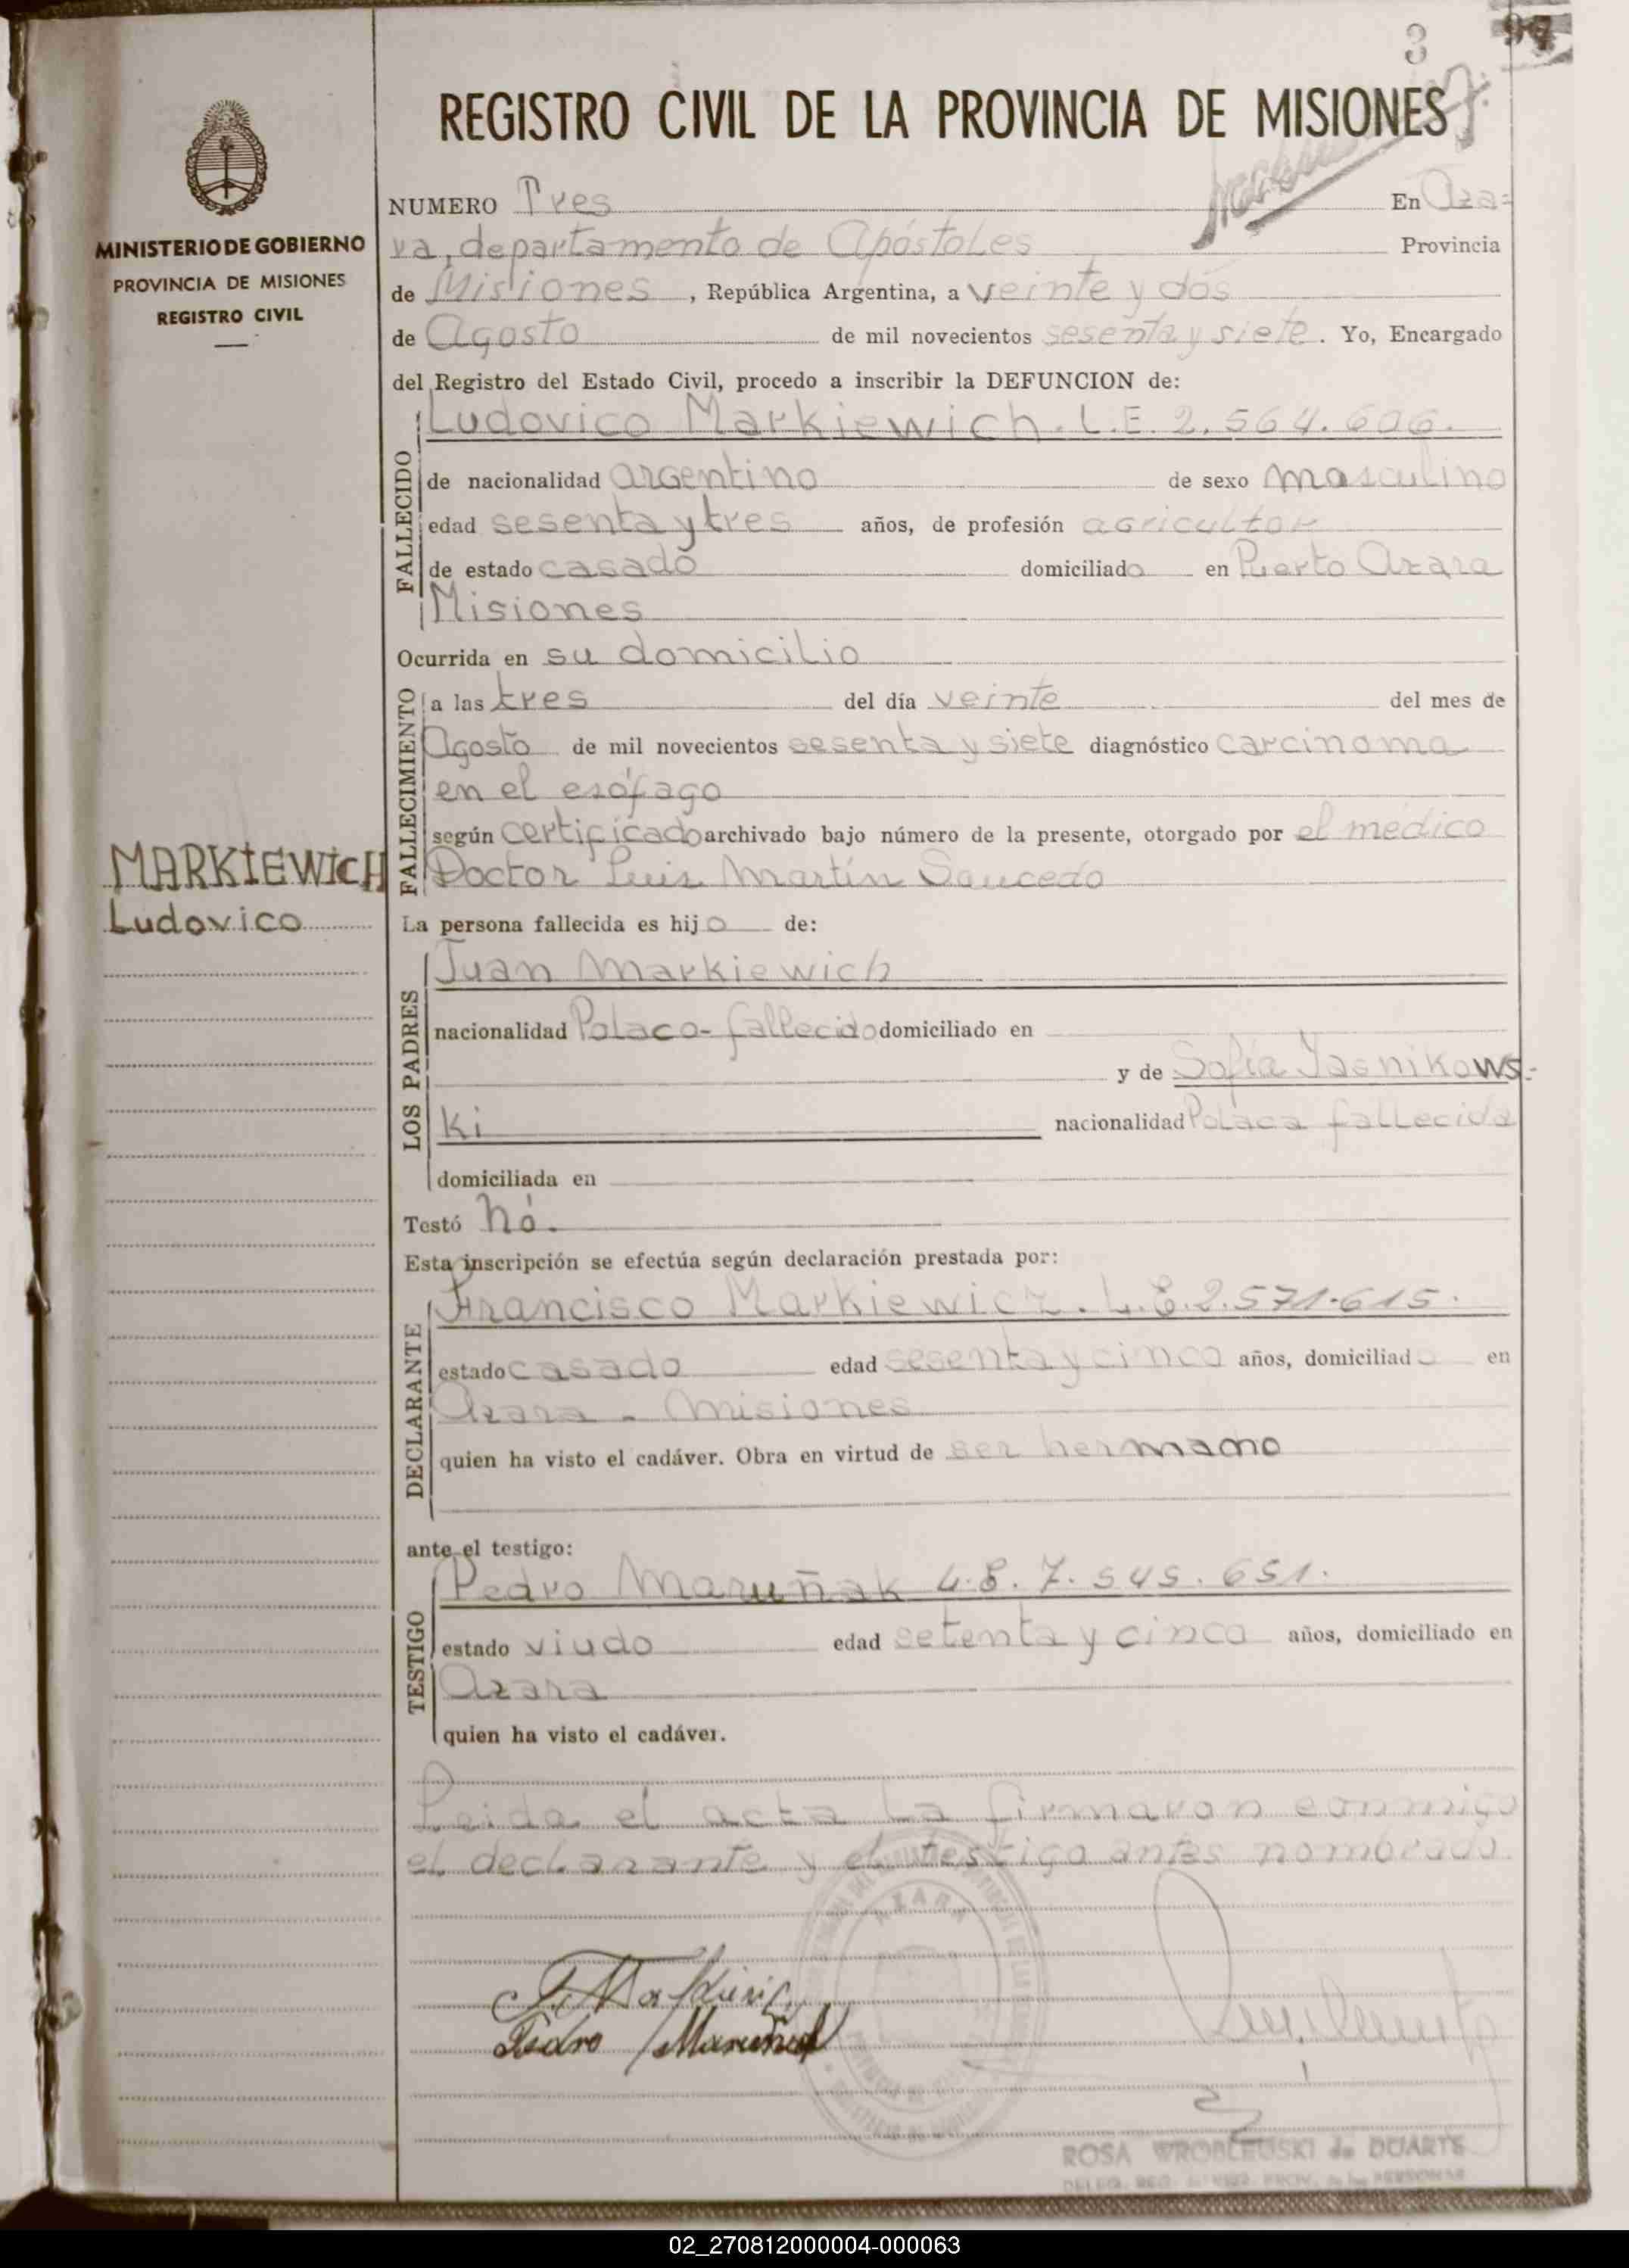 3 97
REGISTRO CIVIL DE LA PROVINCIA DE MISIONES
MINISTERIO DE GOBIERNO
PROVINCIA DE MISIONES
REGISTRO CIVIL
NUMERO Tres En Aza=
ra, departamento de Apóstoles Provincia
de Misiones, República Argentina, a veinte y dos
de Agosto de mil novecientos sesenta y siete. Yo, Encargado
del Registro del Estado Civil, procedo a inscribir la DEFUNCION de:
FALLECIDO
Ludovico Markiewich. L.E. 2.564.606.
de nacionalidad argentino de sexo masculino
edad sesenta y tres años, de profesión agricultor
de estado casado domiciliado en Puerto Azara
Misiones
Ocurrida en su domicilio
FALLECIMIENTO
a las tres del día veinte del mes de
Agosto de mil novecientos sesenta y siete diagnóstico carcinoma
en el esófago
según certificado archivado bajo número de la presente, otorgado por el médico
Doctor Luis Martín Saucedo
MARKIEWICH
Ludovico
La persona fallecida es hijo de:
LOS PADRES
Juan Markiewich
nacionalidad Polaco-fallecido domiciliado en
y de Sofía Yasnikows-
ki nacionalidad Polaca fallecida
domiciliada en
Testó nó.
Esta inscripción se efectúa según declaración prestada por:
DECLARANTE
Francisco Markiewicz. L.E. 2.571.615.
estado casado edad sesenta y cinco años, domiciliado en
Azara - Misiones
quien ha visto el cadáver. Obra en virtud de ser hermano
ante el testigo:
TESTIGO
Pedro Maruñak L.E. 7.545.651.
estado viudo edad setenta y cinco años, domiciliado en
Azara
quien ha visto el cadáver.
Leida el acta la firmaron conmigo
el declarante y el testigo antes nombrado.
AZARA
Pedro Maruñak
ROSA WROBLEUSKI de DUARTE
02_270812000004-000063